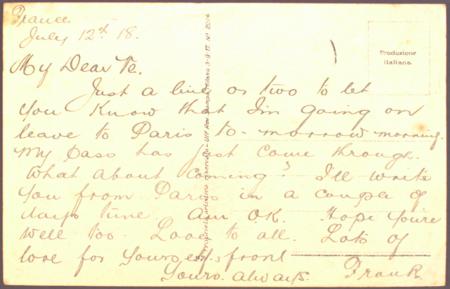 France
July 12th 18.
My Dear Te.
Just a line or two to let
you know that I'm going on
leave to Paris to-morrow morning.
My pass has just come through.
What about coming? I'll write
you from Paris in a couple of
days time. Am OK. Hope you're
well too. Love to all. Lots of
love for yourself, front
Yours always. Frank
Produzione
Italiana.